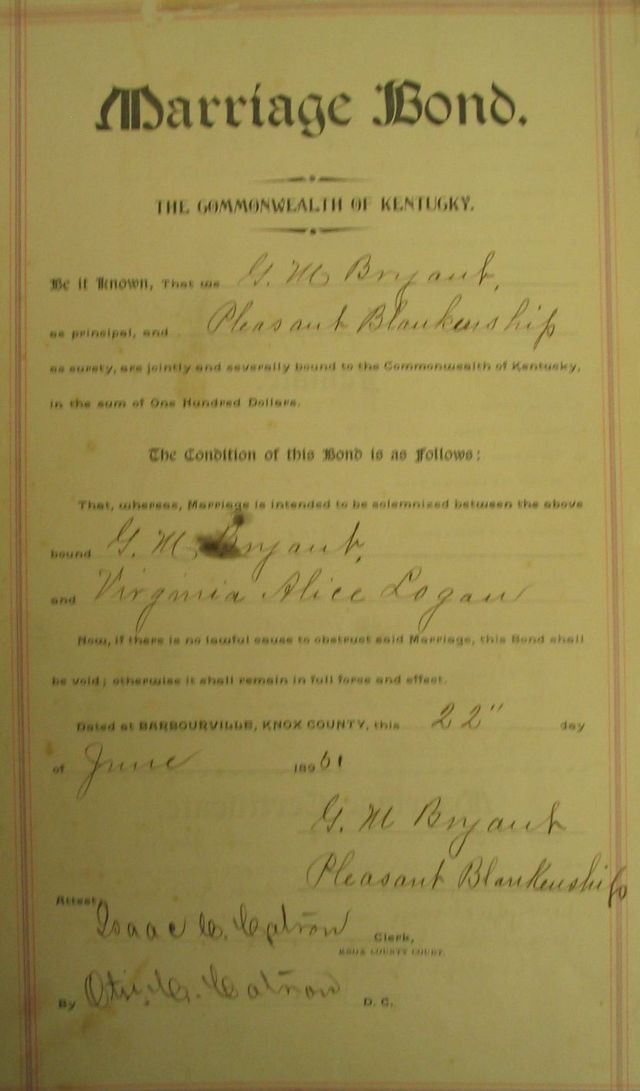 Marriage Bond.
THE COMMONWEALTH OF KENTUCKY.
Be it Known, That we G. M Bryant,
as principal, and Pleasant Blankenship
as surety, are jointly and severally bound to the Commonwealth of Kentucky,
in the sum of One Hundred Dollars.
The Condition of this Bond is as Follows:
That, whereas, Marriage is intended to be solemnized between the above
bound G. M. Bryant,
and Virginia Alice Logan
Now, if there is no lawful cause to obstruct said Marriage, this Bond shall
be void; otherwise it shall remain in full force and effect.
Dated at BARBOURVILLE, KNOX COUNTY, this 22" day
of June 189
G. M Bryant
Pleasant Blankenship
Attest
Isaac C. Catron Clerk,
KNOX COUNTY COURT.
By C. Catron D. C.